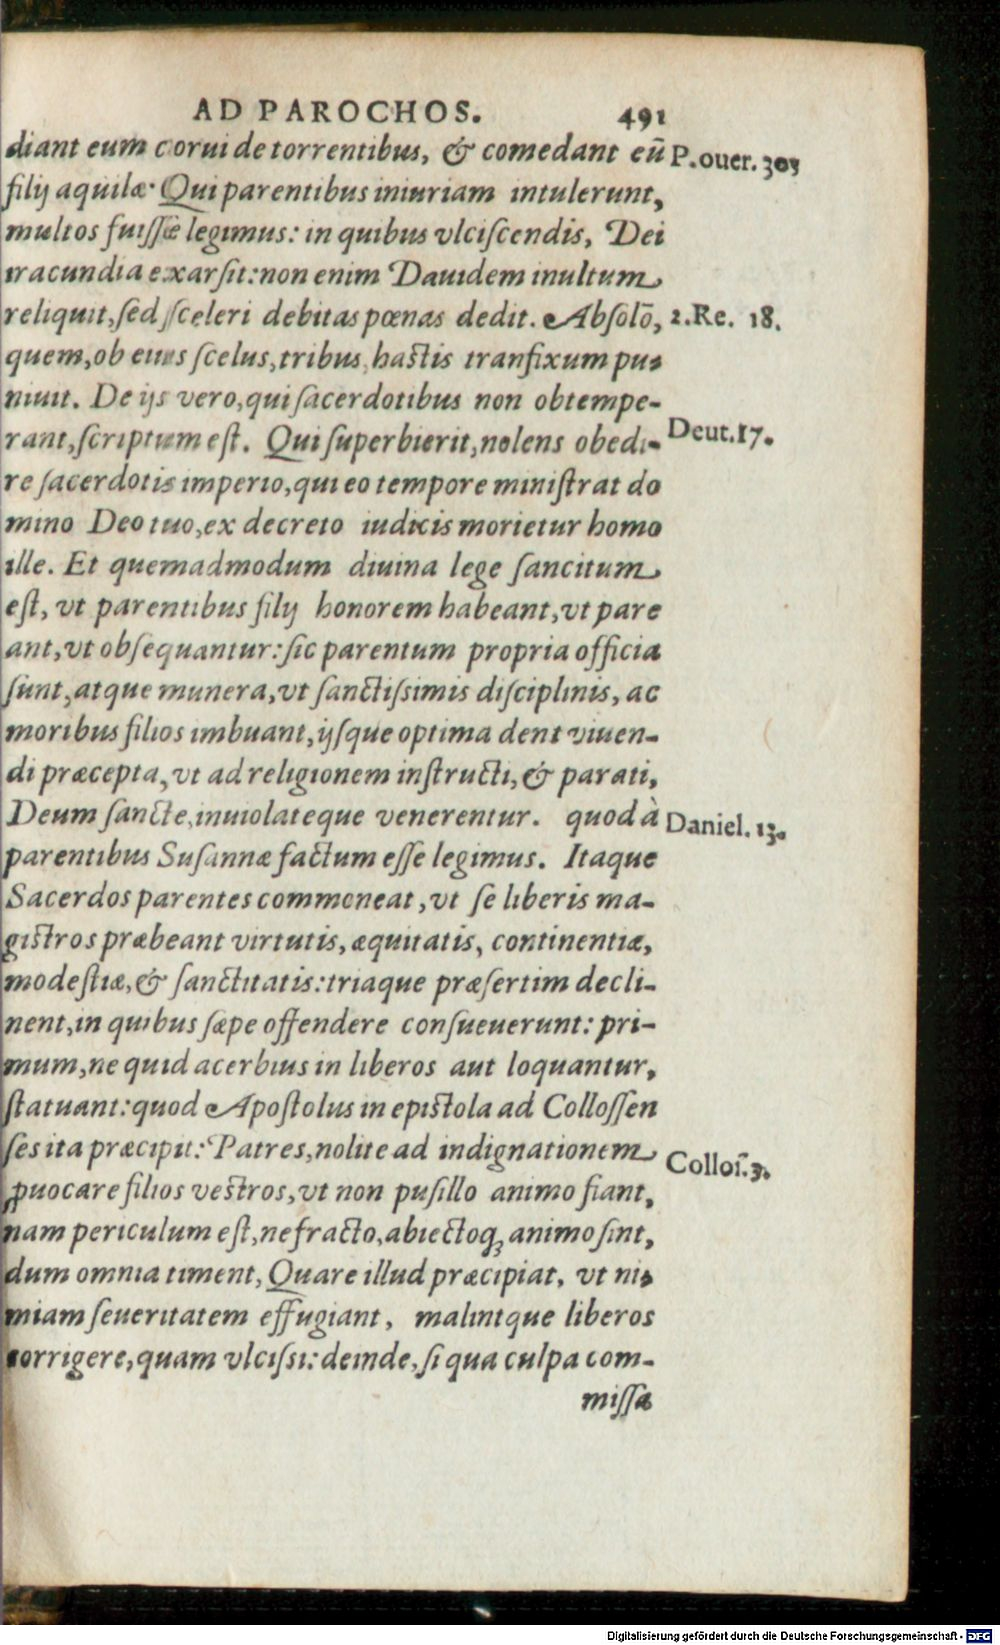 AD PAROCHOS. 491
diant eum corui de torrentibus, & comedant eū P.ouer. 303
filij aquilæ. Qui parentibus iniuriam intulerunt,
multos fuiſſe legimus: in quibus vlciſcendis, Dei
iracundia exarſit: non enim Dauidem inultum
reliquit, ſed ſceleri debitas pœnas dedit. Abſolō, 2.Re. 18.
quem, ob eius ſcelus, tribus haſtis tranfixum pu-
niuit. De ijs vero, qui ſacerdotibus non obtempe-
rant, ſcriptum eſt. Qui ſuperbierit, nolens obedi- Deut.17.
re ſacerdotis imperio, qui eo tempore miniſtrat do
mino Deo tuo, ex decreto iudicis morietur homo
ille. Et quemadmodum diuina lege ſancitum
eſt, vt parentibus filij honorem habeant, vt pare
ant, vt obſequantur: ſic parentum propria officia
ſunt, atque munera, vt ſanctiſsimis diſciplinis, ac
moribus filios imbuant, ijſque optima dent viuen-
di præcepta, vt ad religionem inſtructi, & parati,
Deum ſancte, inuiolateque venerentur. quod à Daniel. 13.
parentibus Suſannæ factum eſſe legimus. Itaque
Sacerdos parentes commoneat, vt ſe liberis ma-
giſtros præbeant virtutis, æquitatis, continentiæ,
modeſtiæ, & ſanctitatis: triaque præſertim decli-
nent, in quibus ſæpe offendere conſueuerunt: pri-
mum, ne quid acerbius in liberos aut loquantur,
ſtatuant: quod Apoſtolus in epiſtola ad Colloſſen
ſes ita præcipit: Patres, nolite ad indignationem Colloſ̄.3.
ꝓuocare filios veſtros, vt non puſillo animo fiant,
nam periculum eſt, ne fracto, abiectoq; animo ſint,
dum omnia timent, Quare illud præcipiat, vt ni-
miam ſeueritatem effugiant, malintque liberos
corrigere, quam vlciſsi: deinde, ſi qua culpa com-
miſſa
Digitalisierung gefördert durch die Deutsche Forschungsgemeinschaft - DFG